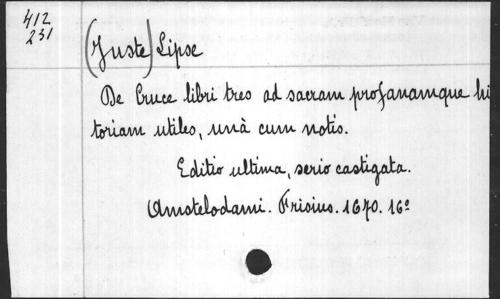 412
231
(Juste) Lipse
De Cruce libri tres ad sacram profanamque his
toriam utiles, unà cum notis.
Editio ultima, serio castigata.
Amstelodami. Frisius. 1670. 16º